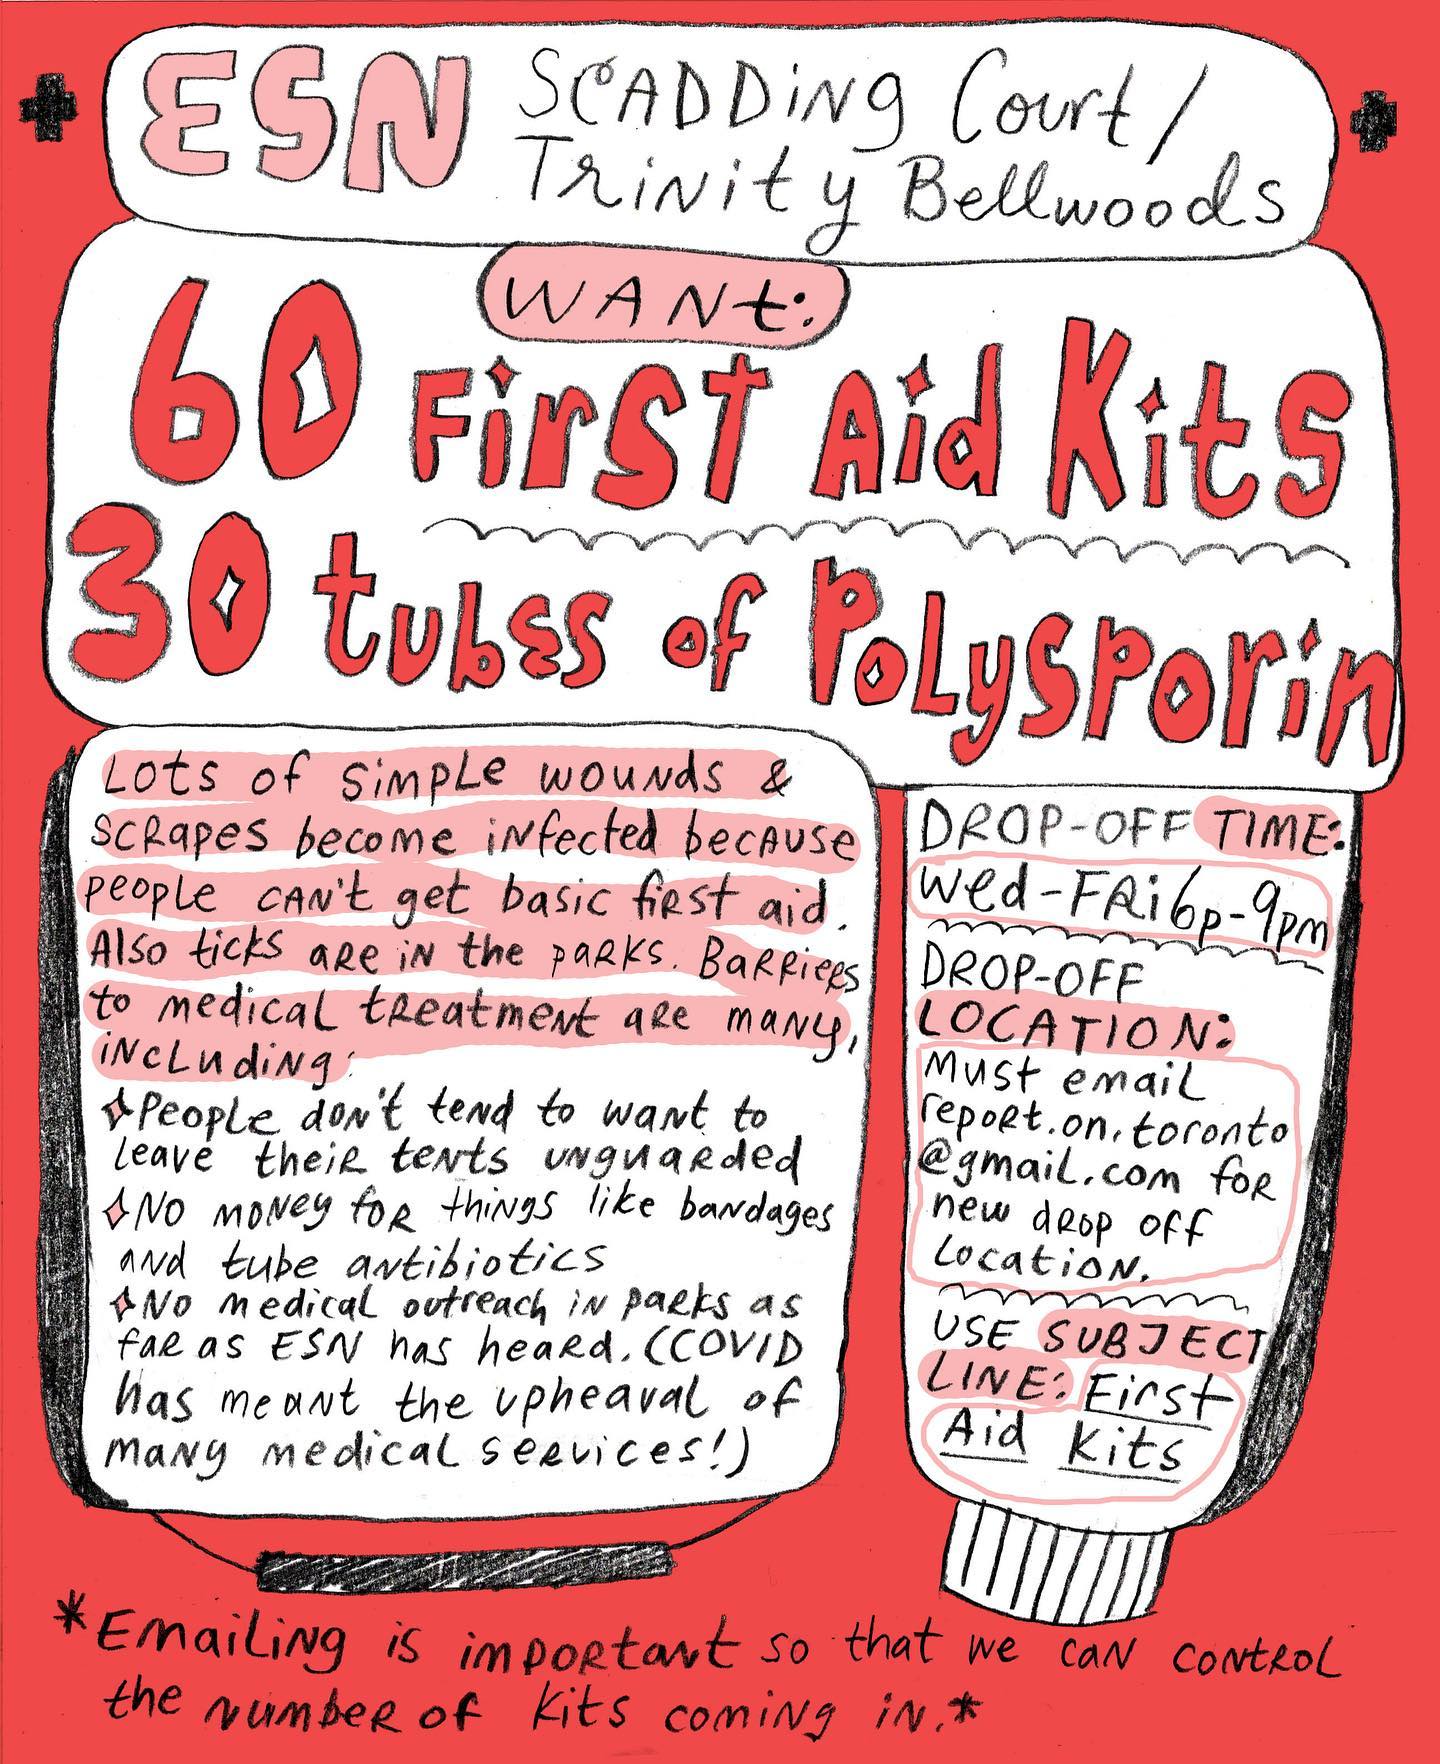 ESN Scadding Court/
Trinity Bellwoods
WANt:
60 First Aid Kits
30 tubes of Polysporin
Lots of simple wounds &
scrapes become infected because
people can't get basic first aid.
Also ticks are in the parks. Barriers
to medical treatment are many,
including:
People don't tend to want to
leave their tents unguarded
No money for things like bandages
and tube antibiotics
No medical outreach in parks as
far as ESN has heard. (COVID
has meant the upheaval of
many medical services!)
DROP-OFF TIME:
Wed-Fri 6p-9pm
DROP-OFF
LOCATION:
Must email
report.on.toronto
@gmail.com for
new drop off
location.
USE SUBJECT
LINE: First
Aid Kits
*Emailing is important so that we can control
the number of kits coming in.*